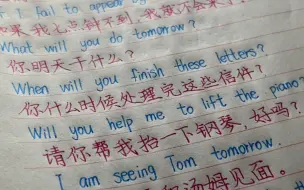 I fail to appear by
来 我 七点钟不到,我就不会来了
What will you do tomorrow?
你明天干什么?
When will you finish these letters?
你什么时候处理完这些信件?
Will you help me to lift the piano
请你帮我抬一下钢琴,好吗?
I am seeing Tom tomorrow.
汤姆见面。